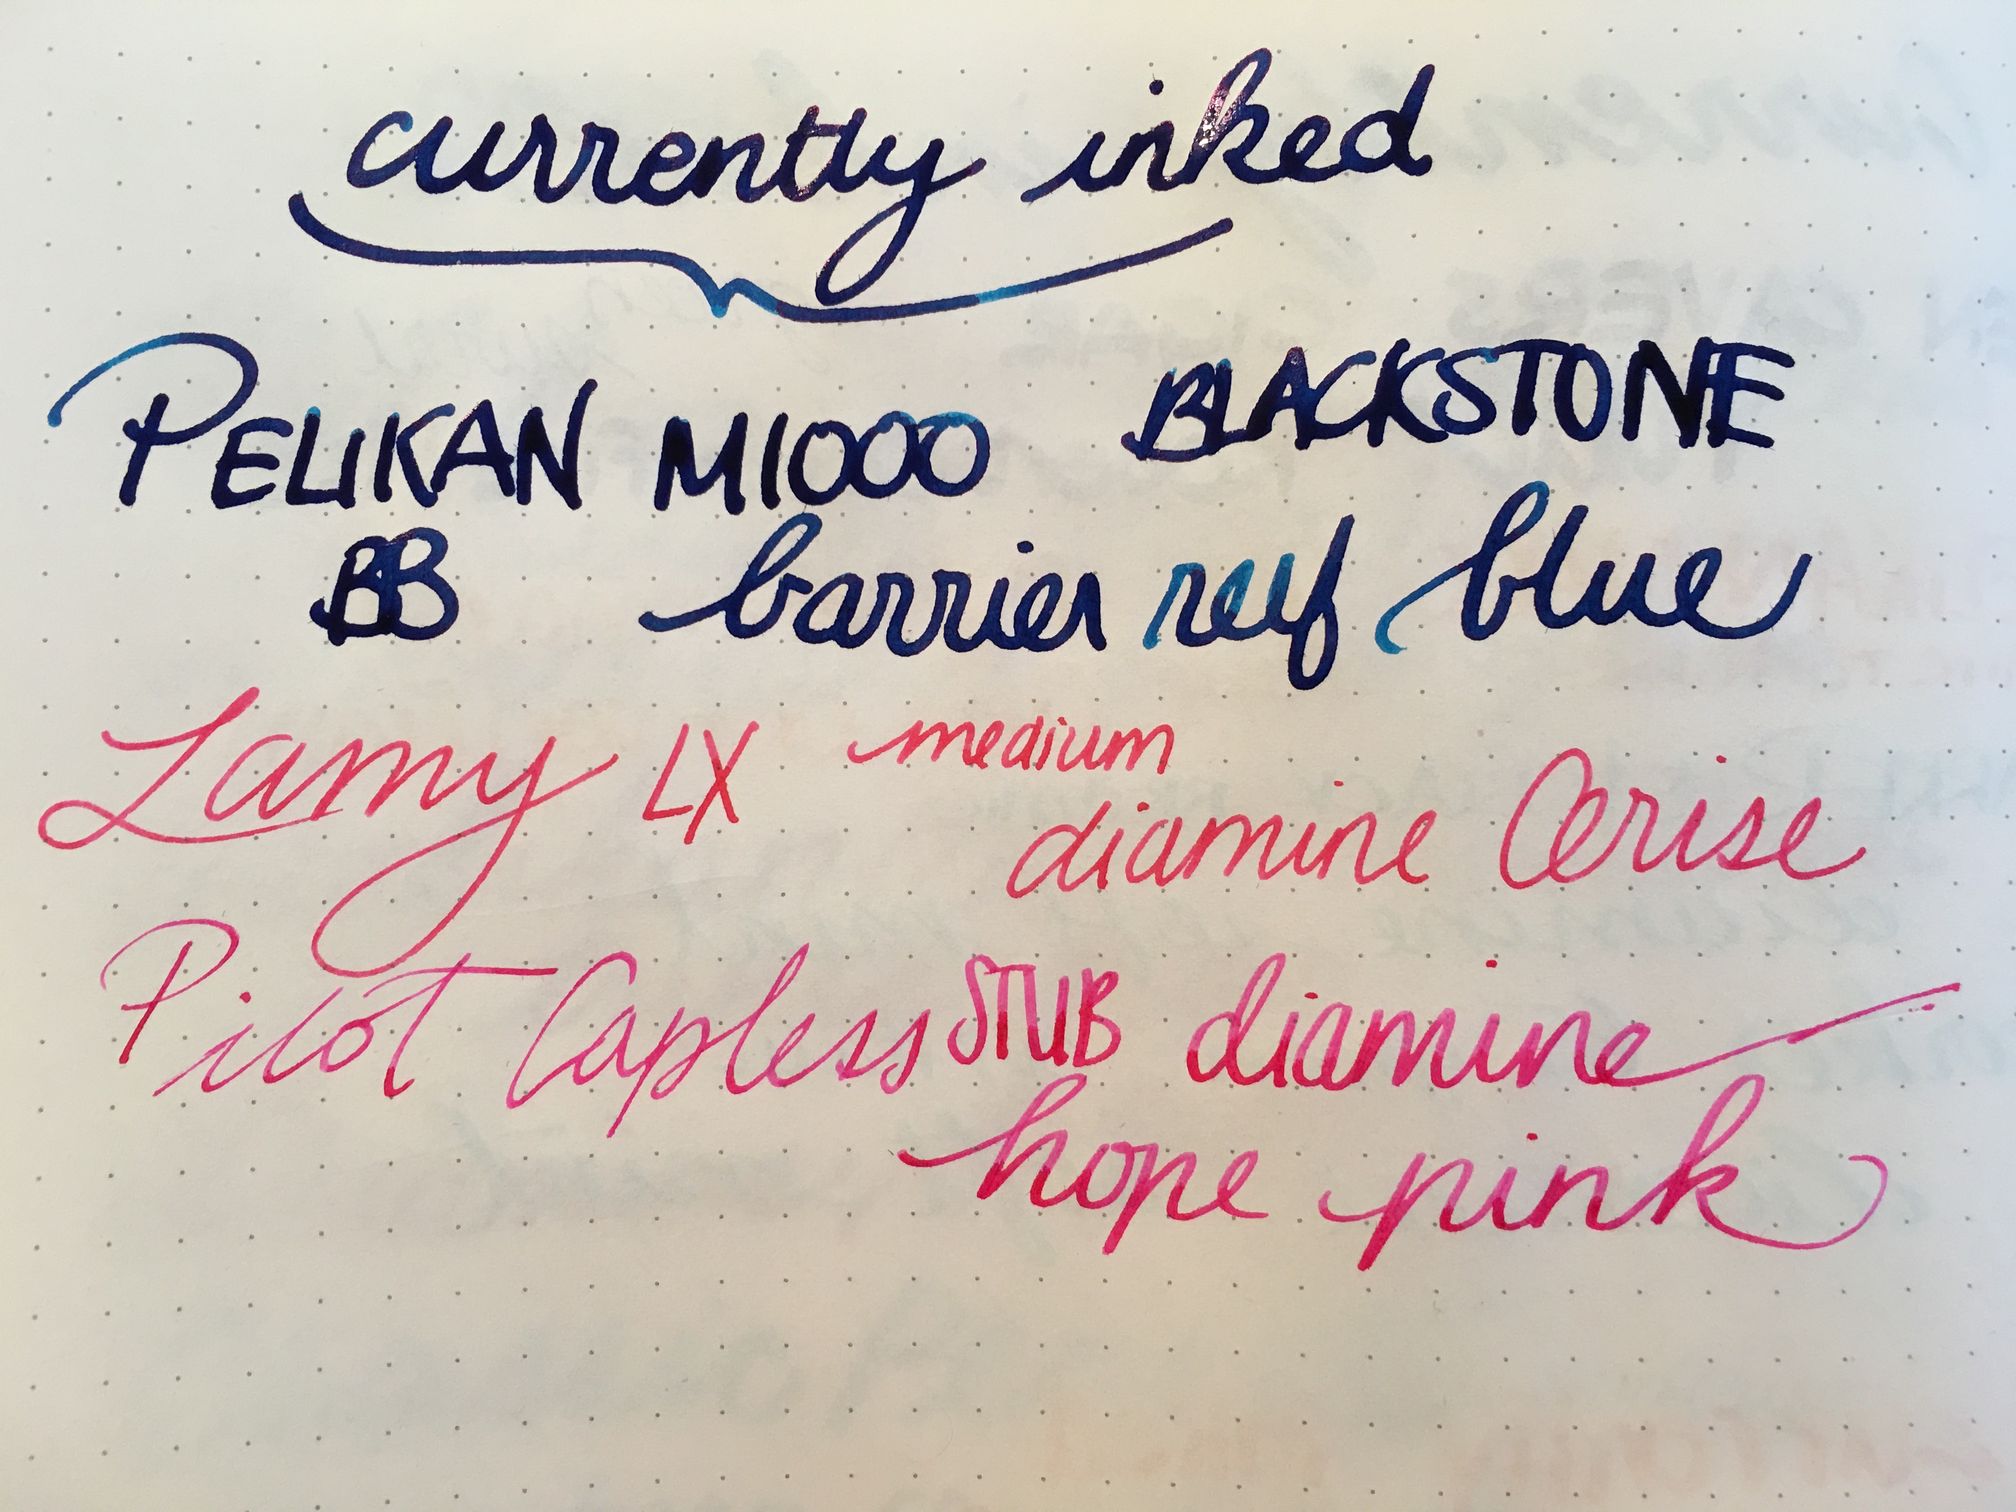 currently inked
PELIKAN M1000 BLACKSTONE
BB barrier reef blue
Lamy LX medium
diamine Cerise
Pilot Capless STUB diamine
hope pink